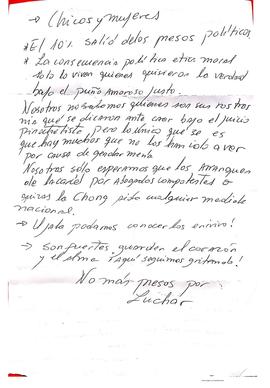 → Chicos y mujeres
* El 10% salió de los presos política
* La consecuencia política etica moral
solo lo viven quienes quisieron la verdad
bajo el puño amoroso justo.
Nosotros no sabemos quienes son sus rostros
ni a que se dicaron ante caer bajo el juicio
pinochetista, pero lo único que se es
que hay muchos que no los han ido a ver
por causa de gendarmeria.
Nosotros sólo esperamos que los arranquen
de la carcel por abogados competentes o
quizas la Chong pida cualquier mediale
nacional.
→ Ujala podamos conocerlos en vivo!
→ Son fuertes guarden el corazón
y el alma ¡aquí seguimos gritando!
No más presos por
Luchar